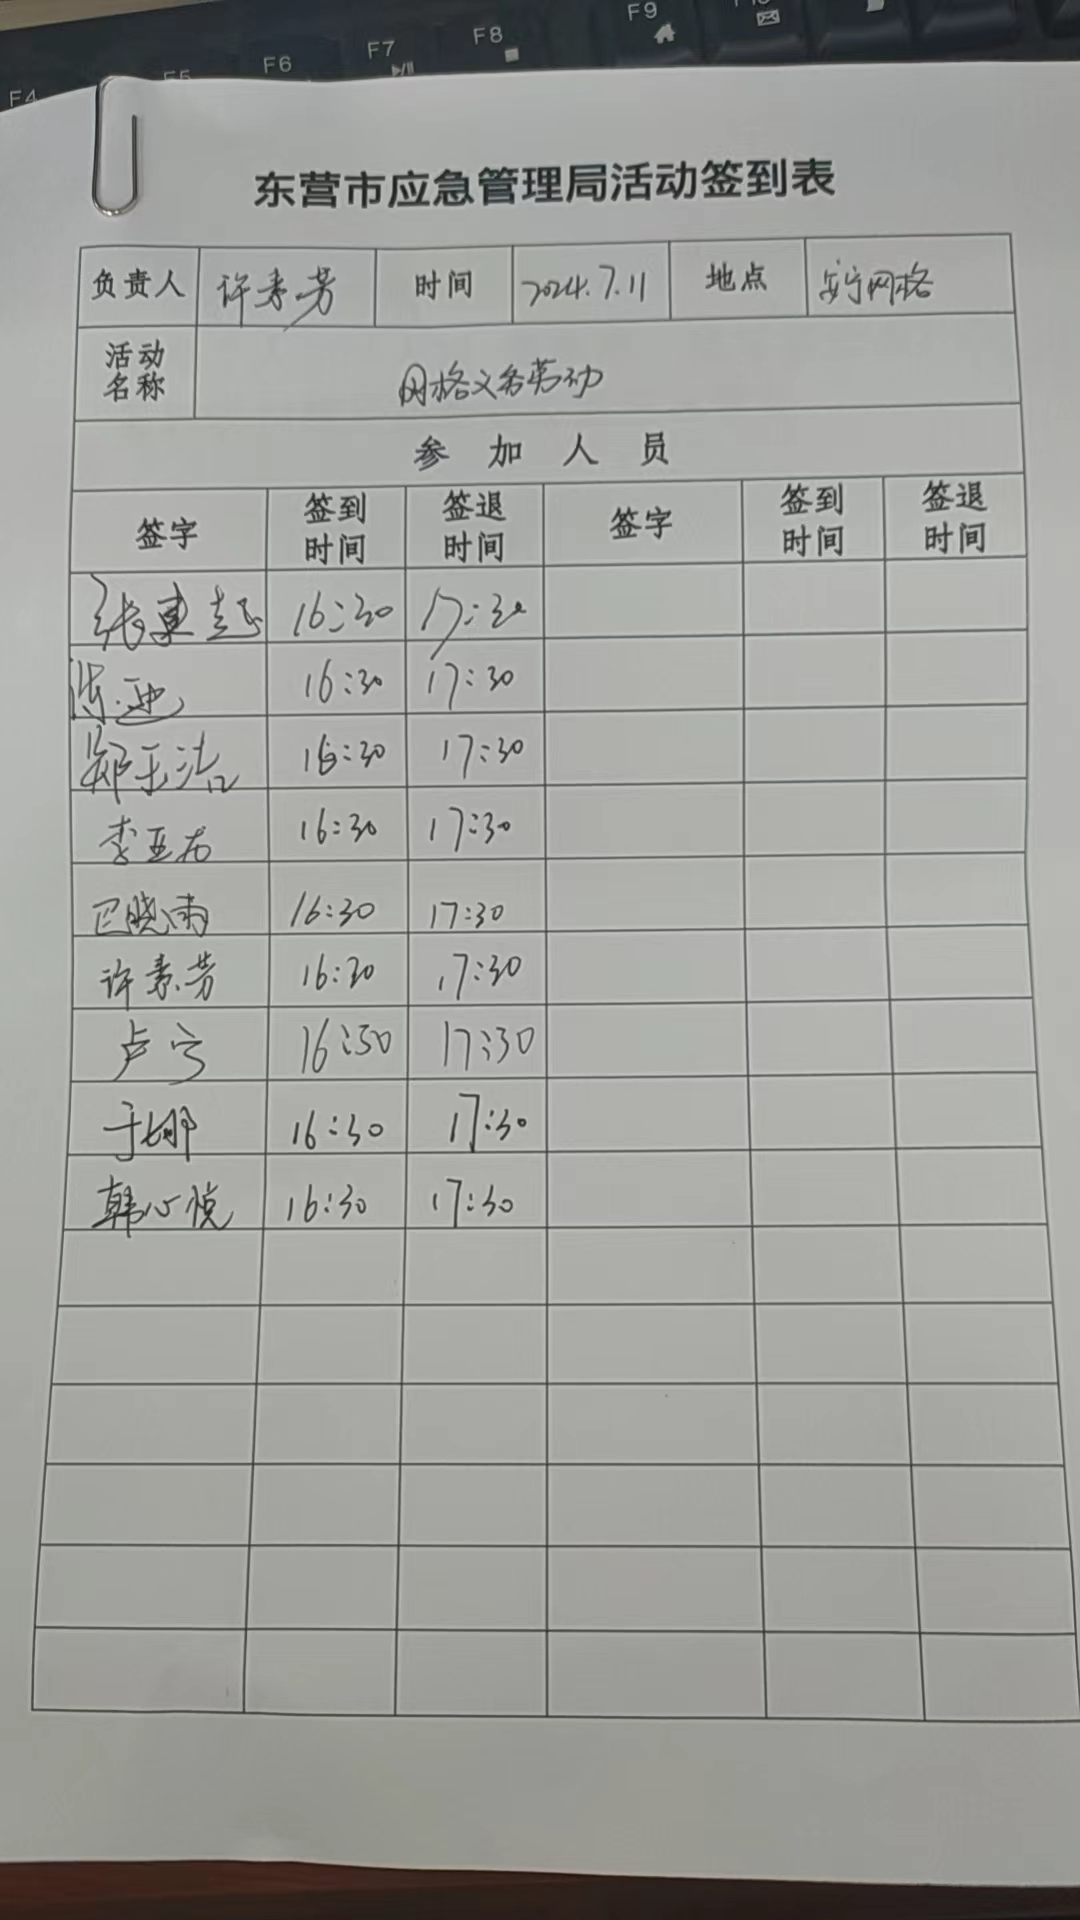 F4 F5 F6 F7 F8 F9
东营市应急管理局活动签到表
负责人 许素芳 时间 2024.7.11 地点 安宁网格
活动名称 网格义务劳动
参加人员
签字 签到时间 签退时间 签字 签到时间 签退时间
张東起 16:30 17:30
陈迪 16:30 17:30
郑玉洁 16:30 17:30
李亚 16:30 17:30
巴晓雨 16:30 17:30
许素芳 16:30 17:30
卢宁 16:50 17:30
于娜 16:30 17:30
韩心悦 16:30 17:30